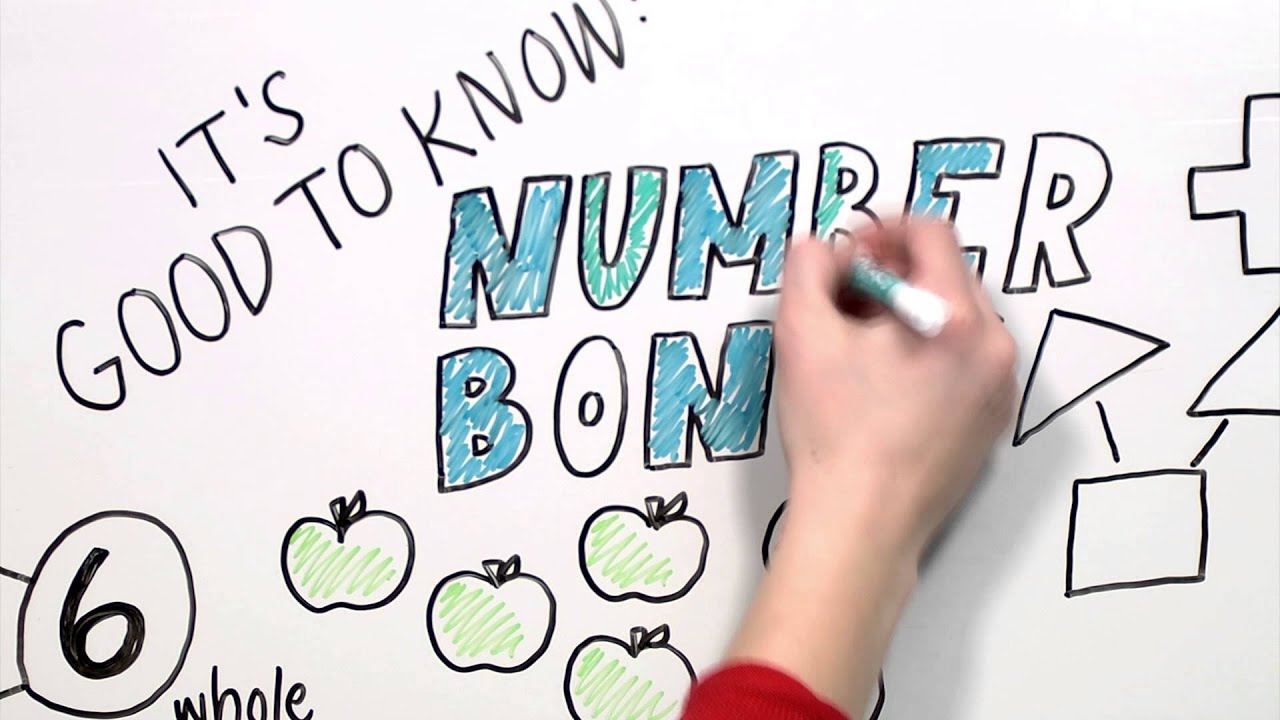 IT'S
GOOD TO KNOW:
NUMBER
BON
6
whole